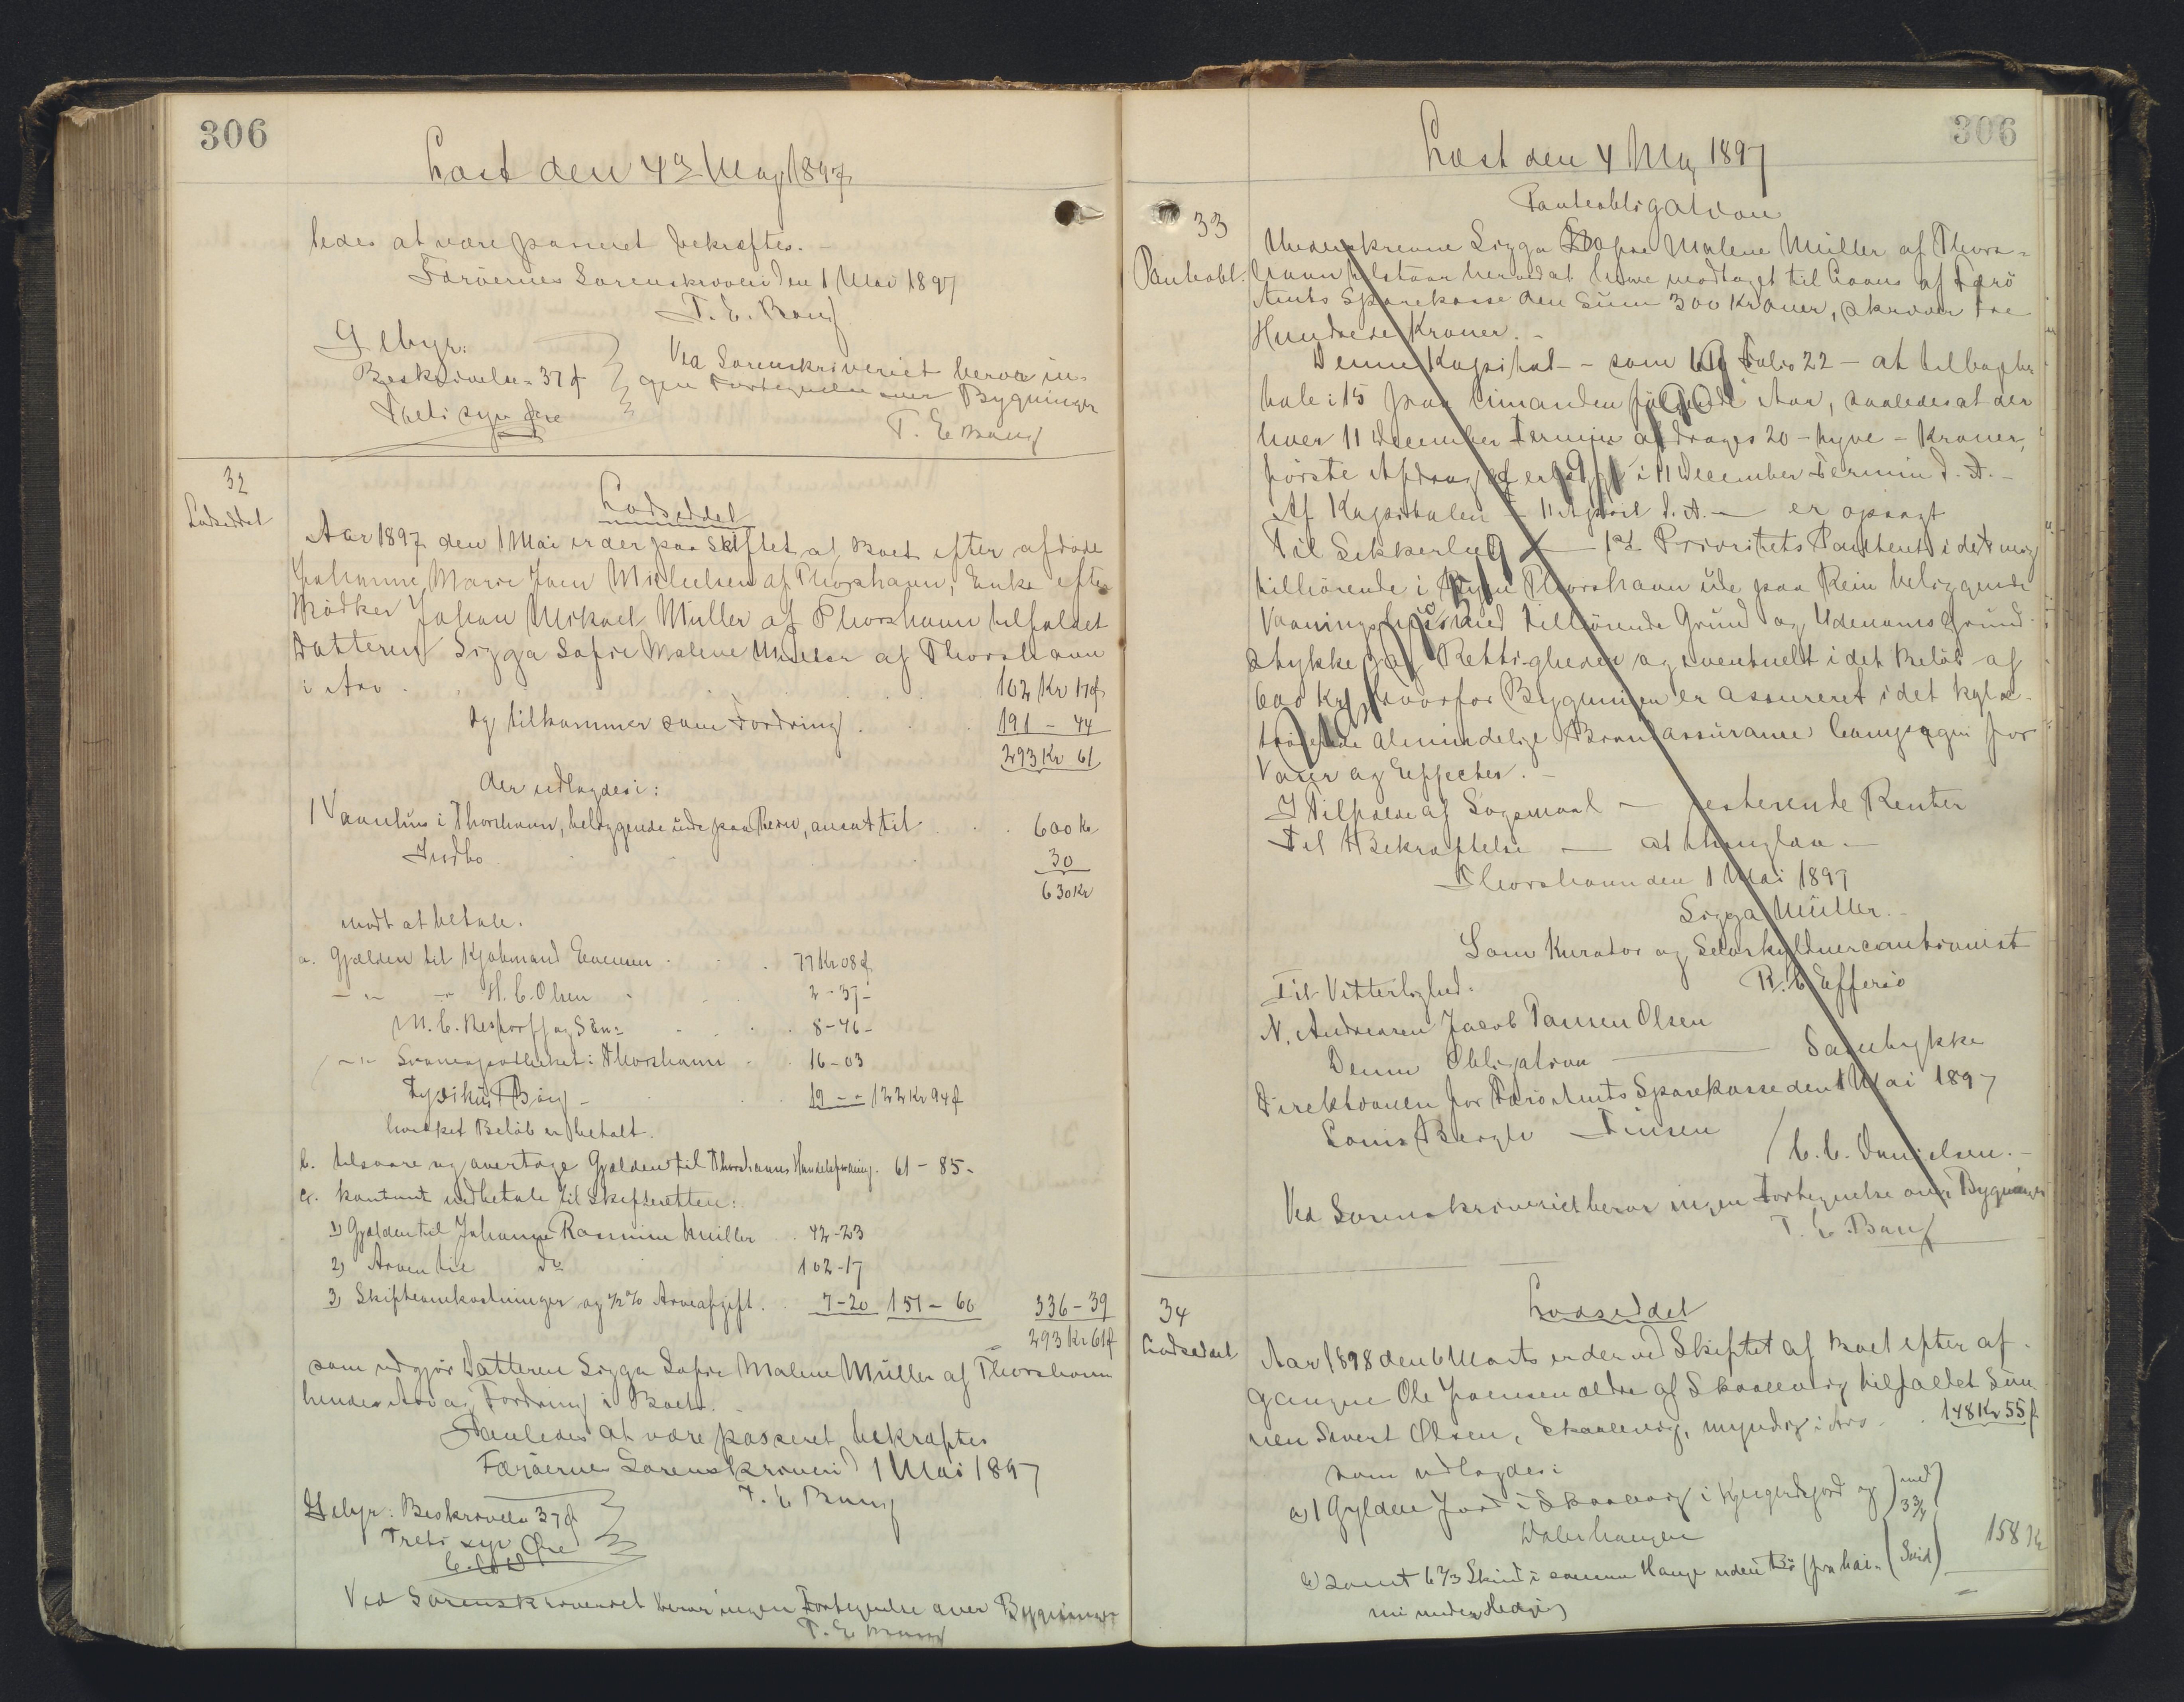 306
Læst den 4de May 1897
ledes at være passeret bekræftes. –
Færöernes Sorenskriveri den 1 Mai 1897
T. E. Bang
Gebyr:
Beskrivelse 37 ф
Treti syv Øre
Ved Sorenskriveriet beror in-
gen Fortegnelse over Bygninger
T. E Bang
32
Lodseddel
Lodseddel
Aar 1897 den 1 Mai er der paa Skiftet af Boet efter afdöde
Johanne Marie Joen Michelsen af Thorshavn, Enke efter
Bödker Johan Mikael Müller af Thorshavn tilfaldet
Datteren Sigga Sofie Malene Müller af Thorshavn
i Arv . . . 102 Kr 17 ф
og tilkommer som Fordring . . 191 – 44
293 Kr 61
der udlagdes i:
1 Vaanhus i Thorshavn, beliggende ude paa Rein, ansat til . . 600 Kr
Indbo . . . 30
630 Kr
modt at betale.
a. Gjælden til Kjøbmand Evensen . . 77 Kr 08 ф
– " – – " – H. C. Olsen . 2 – 37 –
M. C. Restorff og Sön: . . 8 – 46 –
– " – Svaneapotheket i Thorshavn . . 16 – 03
Fysikus Börg – . 19 – " 122 Kr 94 ф
hvilket Belöb er betalt.
b. tilsvare og overtage Gjælden til Thorshavns Handelsforening . 61 – 85 –
c. kontant indbetale til Skifteretten:
1) Gjælden til Johanne Rasmine Müller . . 42 – 23
2) Arven til do 102 – 17
3) Skifteomkostninger og ½ % Arveafgift . . 7 – 20 151 – 60 336 – 39
293 Kr 61 ф
som udgjör Datteren Sigga Sofie Malene Müller af Thorshavn
hendes Arv og Fordring i Boet. –
Saaledes at være passeret bekræftes
Færöernes Sorenskriveri 1 Mai 1897
T. E Bang
Gebyr: Beskrivelse 37 ф
Treti syv Øre
Ved Sorenskriveriet beror ingen Fortegnelse over Bygninger
T. E Bang
306
Læst den 4 May 1897
33
Panteobl.
Panteobligation
Underskrevne Sigga Sofie Malene Müller af Thors-
havn tilstaar herved at have modtaget til Laans af Færö
Amts Sparekasse den Sum 300 Kroner, skriver tre
Hundrede Kroner. –
Denne Kapital – som Folio 22 – at tilbagebe
tale i 15 paa hinanden fölgende Aar, saaledes at der
hver 11 December Termin afdrages 20 – tyve – Kroner,
förste Afdrag at erlægge i 11 December Termin d. A. –
Af Kapitalen – 11 April d. A. – er opsagt
Til Sikkerhed – 1st Prioritets Panteret i det mig
tilhörende i Byen Thorshavn ude paa Rein beliggende
Vaaningshus med tilhörende Grund og Udenoms Grund-
stykke og Rettigheder og eventuelt i det Belöb af
600 Kr hvorfor Bygningen er assureret i det kgl oc-
troierede almindelige Brandassurance Compagni for
Varer og Effecter. –
I Tilfælde af Sögsmaal – resterende Renter
Til Bekræftelse – at thinglæse –
Thorshavn den 1 Mai 1897
Sigga Müller. –
Som Kurator og Selvskyldnercautionist
R. C Effersö
Til Vitterlighed:
N. Andreasen Jacob Paulsen Olsen
Denne Obligation – Samtykke
Direktionen for Færö Amts Sparekasse den 1 Mai 1897
Louis Bergh Finsen / C. C. Danielsen. –
Ved Sorenskriveriet beror ingen Fortegnelse over Bygninger
T. E. Bang
34
Lodseddel
Lodseddel
Aar 1898 den 6 Marts er der ved Skiftet af Boet efter af-
gangne Ole Joensen ældre af Skaalevig tilfaldet Sön
nen Sivert Olsen, Skaalevig, myndig i Arv . . 148 Kr 55 ф
som udlagdes:
a) 1 Gylden Jord i Skaalevig i og med 3¾ Skind
b) samt 6 ⅔ Skind i samme Hauge
158 Kr